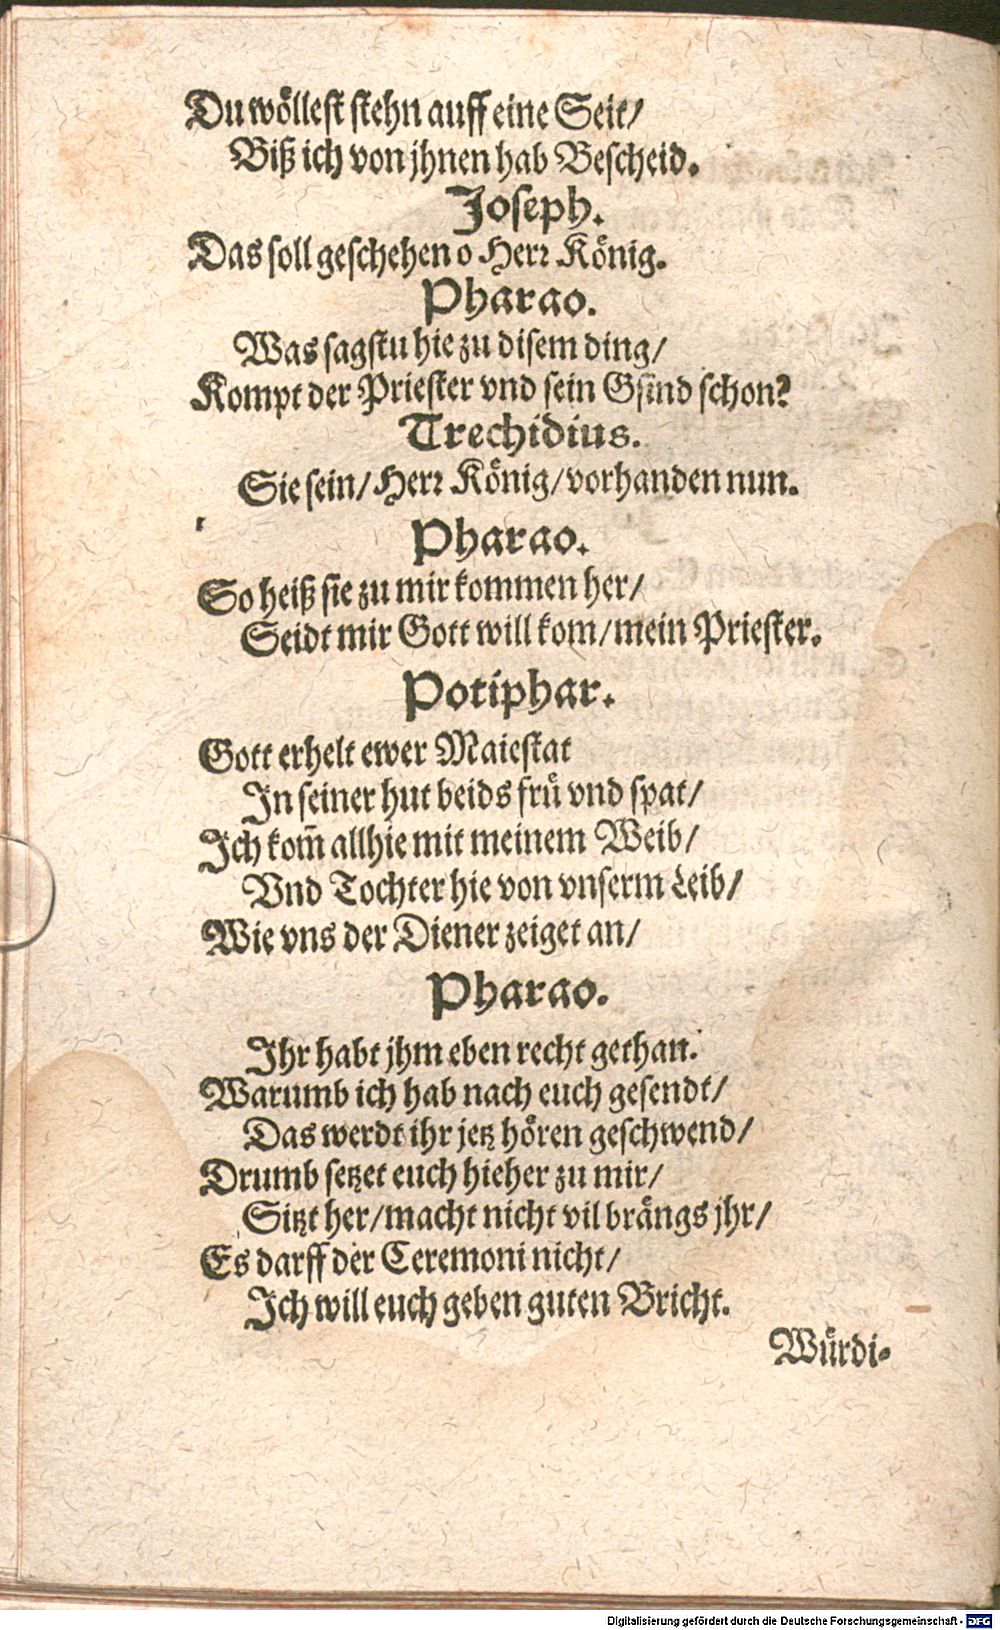 Du woͤllest stehn auff eine Seit/
Biß ich von jhnen hab Bescheid.
Joseph.
Das soll geschehen o Herꝛ Koͤnig.
Pharao.
Was sagstu hie zu disem ding/
Kompt der Priester vnd sein Gsind schon?
Trechidius.
Sie sein/ Herꝛ Koͤnig/ vorhanden nun.
Pharao.
So heiß sie zu mir kommen her/
Seidt mir Gott will kom/ mein Priester.
Potiphar.
Gott erhelt ewer Maiestat
In seiner hut beids fruͤ vnd spat/
Ich kom̃ allhie mit meinem Weib/
Vnd Tochter hie von vnserm Leib/
Wie vns der Diener zeiget an/
Pharao.
Ihr habt jhm eben recht gethan.
Warumb ich hab nach euch gesendt/
Das werdt ihr jetz hoͤren geschwend/
Drumb setzet euch hieher zu mir/
Sitzt her/ macht nicht vil braͤngs jhr/
Es darff der Ceremoni nicht/
Ich will euch geben guten Bricht.
Wuͤrdi-
Digitalisierung gefördert durch die Deutsche Forschungsgemeinschaft - DFG